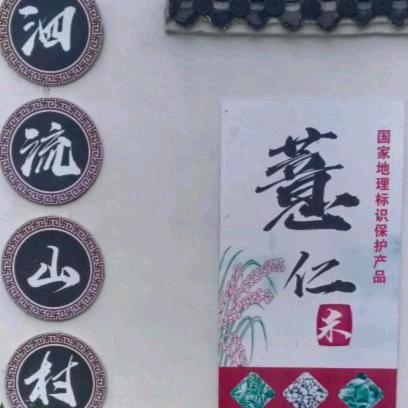 泗流山村
薏仁米
国家地理标识保护产品